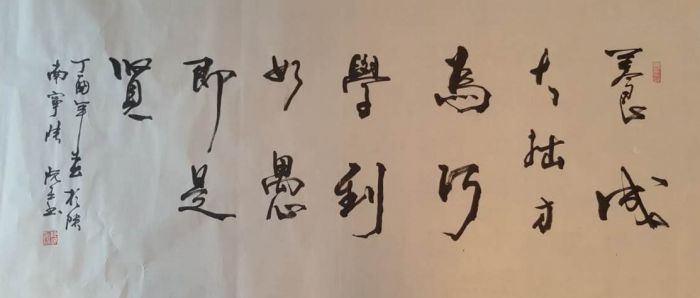 養成
大拙方
為巧
學到
如愚
即是
賢
丁酉年 於陕
南寧